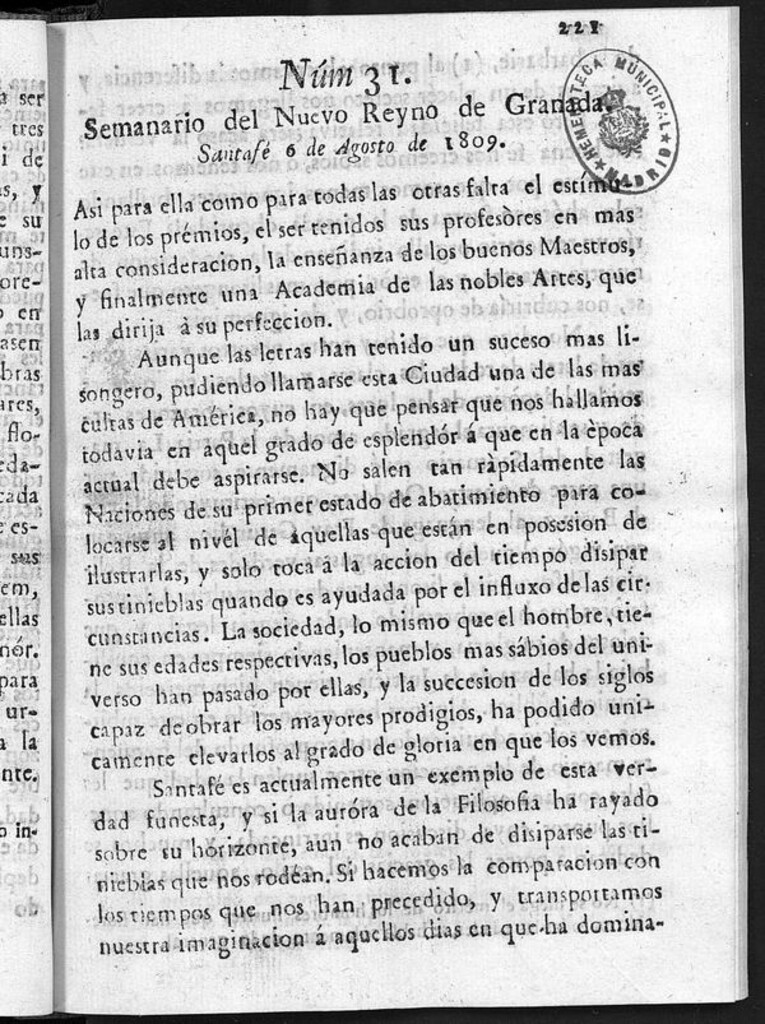 221
Núm 31.
Semanario del Nuevo Reyno de Granada.
Santafé 6 de Agosto de 1809.
HEMEROTECA MUNICIPAL
MADRID
Asi para ella como para todas las otras falta el estímu-
lo de los prémios, el ser tenidos sus profesòres en mas
alta consideracion, la enseñanza de los buenos Maestros,
y finalmente una Academia de las nobles Artes, que
las dirija à su perfeccion.
Aunque las letras han tenido un suceso mas li-
songero, pudiendo llamarse esta Ciudad una de las mas
cultas de América, no hay que pensar que nos hallamos
todavia en aquel grado de esplendór á que en la època
actual debe aspirarse. No salen tan ràpidamente las
Naciones de su primer estado de abatimiento para co-
locarse al nivél de aquellas que están en posesion de
ilustrarlas, y solo toca á la accion del tiempo disipar
sus tinieblas quando es ayudada por el influxo de las cir-
cunstancias. La sociedad, lo mismo que el hombre, tie-
ne sus edades respectivas, los pueblos mas sábios del uni-
verso han pasado por ellas, y la succesion de los siglos
capaz de obrar los mayores prodigios, ha podido uni-
camente elevarlos al grado de gloria en que los vemos.
Santafé es actualmente un exemplo de esta ver-
dad funesta, y si la auróra de la Filosofia ha rayado
sobre su horizonte, aun no acaban de disiparse las ti-
nieblas que nos rodéan. Si hacemos la comparacion con
los tiempos que nos han precedido, y transportamos
nuestra imaginacion á aquellos dias en que ha domina-
a ser
tres
i de
as, y
e su
uns-
ore-
o en
asen
bras
ares,
flo-
eda-
cada
e es-
sus
em,
ellas
nór.
para
ur-
a la
nte.
o in-